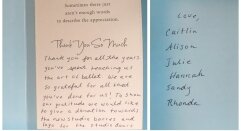 Sometimes there just
aren't enough words
to describe the appreciation.
Thank You So Much
Thank you for all the years
you've spent teaching us
the art of ballet. We are
so grateful for all that
you've done for us! To show
our gratitude we would like
to give a donation towards
the new studio barres and
logo for the studio doors
Love,
Caitlin
Alison
Julie
Hannah
Sandy
Rhonda